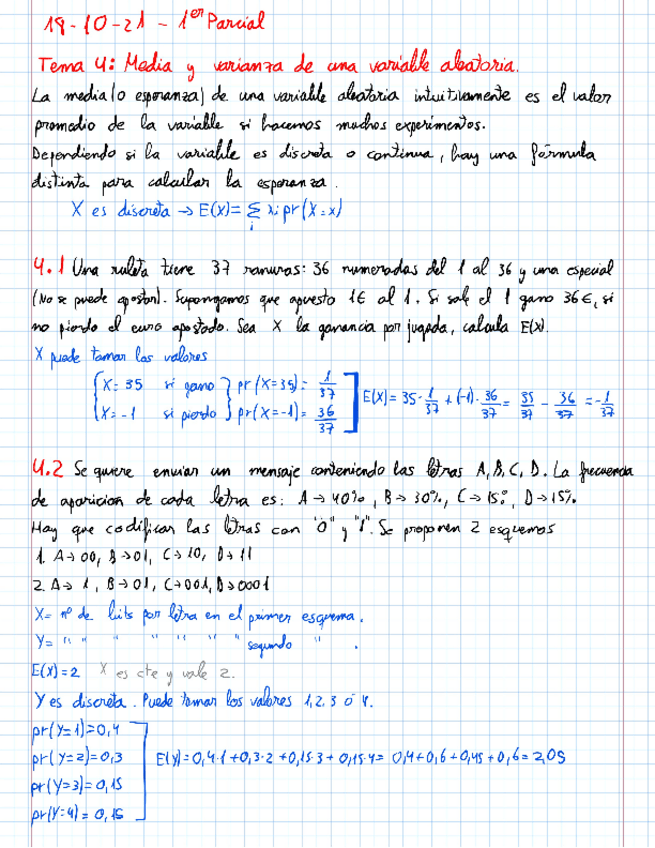 18-10-21 - 1er Parcial
Tema 4: Media y varianza de una variable aleatoria.
La media (o esperanza) de una variable aleatoria intuitivamente es el valor
promedio de la variable si hacemos muchos experimentos.
Dependiendo si la variable es discreta o continua, hay una fórmula
distinta para calcular la esperanza.
X es discreta → E(X) = Σ xi pr(X=x)
i
4.1 Una ruleta tiene 37 ranuras: 36 numeradas del 1 al 36 y una especial
(No se puede apostar). Supongamos que apuesto 1€ al 1. Si sale el 1 gano 36€, si
no pierdo el euro apostado. Sea X la ganancia por jugada, calcula E(X).
X puede tomar los valores
{ X = 35 si gano } pr(X=35) = 1/37
{ X = -1 si pierdo } pr(X=-1) = 36/37 ] E(X) = 35 · 1/37 + (-1) · 36/37 = 35/37 - 36/37 = -1/37
4.2 Se quiere enviar un mensaje conteniendo las letras A, B, C, D. La frecuencia
de aparicion de cada letra es: A → 40%, B → 30%, C → 15%, D → 15%.
Hay que codificar las letras con "0" y "1". Se proponen 2 esquemas
1. A → 00, B → 01, C → 10, D → 11
2. A → 1, B → 01, C → 001, D → 0001
X = nº de bits por letra en el primer esquema.
Y = " " " " " " " segundo " .
E(X) = 2 X es cte y vale 2.
Y es discreta. Puede tomar los valores 1, 2, 3 ó 4.
pr(Y=1) = 0,4
pr(Y=2) = 0,3 E(Y) = 0,4·1 + 0,3·2 + 0,15·3 + 0,15·4 = 0,4 + 0,6 + 0,45 + 0,6 = 2,05
pr(Y=3) = 0,15
pr(Y=4) = 0,15